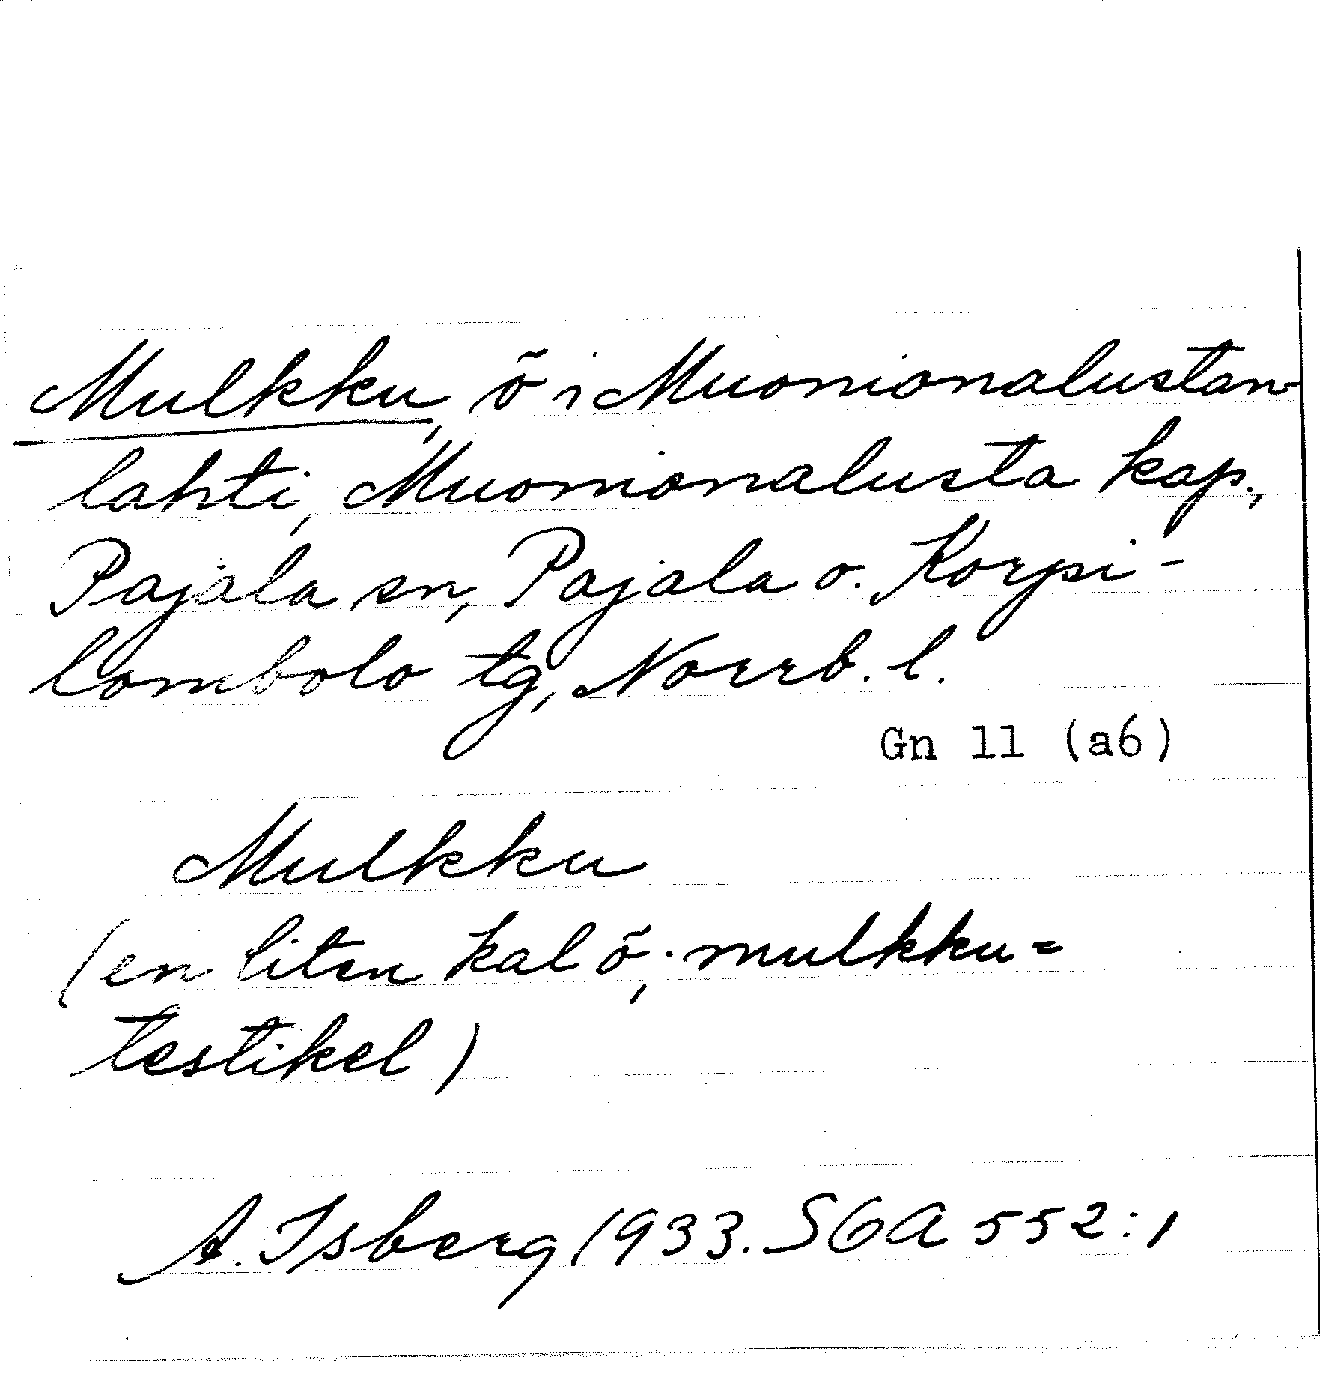 Mulkku, ö i Muonionalustan-
lahti, Muonionalusta kap.,
Pajala sn, Pajala o. Korpi-
lombolo tg, Norrb. l.
Gn 11 (a6)
Mulkku
(en liten kal ö; mulkku =
testikel)
A. Isberg 1933. SGA 552:1